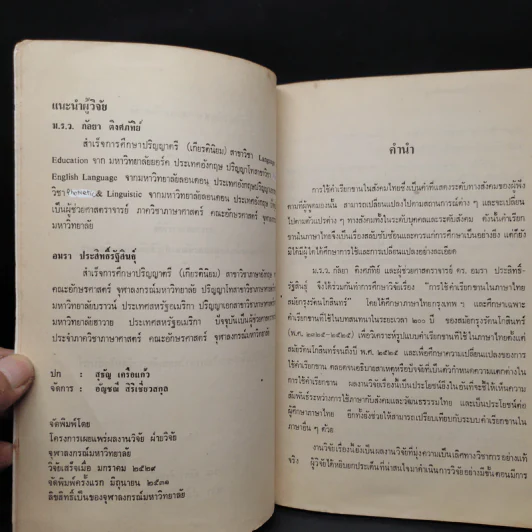 แนะนำผู้วิจัย
ม.ร.ว. กัลยา ติงศภัทิย์
สำเร็จการศึกษาปริญญาตรี (เกียรตินิยม) สาขาวิชา Language
Education จาก มหาวิทยาลัยยอร์ค ประเทศอังกฤษ ปริญญาโทสาขาวิชา
English Language จากมหาวิทยาลัยลอนดอน ประเทศอังกฤษ
วิชา Phonetic & Linguistic จากมหาวิทยาลัยลอนดอน ประเทศอังกฤษ
เป็นผู้ช่วยศาสตราจารย์ ภาควิชาภาษาศาสตร์ คณะอักษรศาสตร์
มหาวิทยาลัย
อมรา ประสิทธิ์รัฐสินธุ์
สำเร็จการศึกษาปริญญาตรี (เกียรตินิยม) สาขาวิชาภาษาอังกฤษ
คณะอักษรศาสตร์ จุฬาลงกรณ์มหาวิทยาลัย ปริญญาโทสาขาวิชา
มหาวิทยาลัยบราวน์ ประเทศสหรัฐอเมริกา ปริญญาเอกสาขาวิชา
มหาวิทยาลัยฮาวาย ประเทศสหรัฐอเมริกา ปัจจุบันเป็นผู้ช่วยศาสตราจารย์
ประจำภาควิชาภาษาศาสตร์ คณะอักษรศาสตร์ จุฬาลงกรณ์มหาวิทยาลัย
ปก : สุชัญ เครือแก้ว
จัดการ : อัญชณี สิริเชี่ยวสกุล
จัดพิมพ์โดย
โครงการเผยแพร่ผลงานวิจัย ฝ่ายวิจัย
จุฬาลงกรณ์มหาวิทยาลัย
วิจัยเสร็จเมื่อ มกราคม ๒๕๒๙
จัดพิมพ์ครั้งแรก มิถุนายน ๒๕๓๑
ลิขสิทธิ์เป็นของจุฬาลงกรณ์มหาวิทยาลัย
คำนำ
การใช้คำเรียกขานในสังคมไทยซึ่งเป็นคำที่แสดงระดับทางสังคมของผู้ฟัง
ตามที่ผู้พูดมองนั้น สามารถเปลี่ยนแปลงไปตามสถานการณ์ต่าง ๆ และจะเปลี่ยน
ไปตามตัวแปรต่าง ๆ ทางสังคมทั้งในระดับบุคคลและระดับสังคม ดังนั้นคำเรียก
ขานในภาษาไทยจึงเป็นเรื่องสลับซับซ้อนและควรแก่การศึกษาเป็นอย่างยิ่ง แต่ก็ยัง
มิได้มีผู้ใดได้ศึกษาการใช้และการเปลี่ยนแปลงอย่างละเอียด
ม.ร.ว. กัลยา ติงศภัทิย์ และผู้ช่วยศาสตราจารย์ ดร. อมรา ประสิทธิ์-
รัฐสินธุ์ จึงได้ร่วมกันทำการศึกษาวิจัยเรื่อง "การใช้คำเรียกขานในภาษาไทย
สมัยกรุงรัตนโกสินทร์" โดยได้ศึกษาภาษาไทยกรุงเทพ ๆ และศึกษาเฉพาะ
คำเรียกขานที่ใช้ในบทสนทนาในระยะเวลา ๒๐๐ ปี ของสมัยกรุงรัตนโกสินทร์
(พ.ศ. ๒๓๒๕-๒๕๒๕) เพื่อวิเคราะห์รูปแบบคำเรียกขานที่ใช้ในภาษาไทยตั้งแต่
สมัยรัตนโกสินทร์จนถึงปี พ.ศ. ๒๕๒๕ และเพื่อศึกษาความเปลี่ยนแปลงของการ
ใช้คำเรียกขาน ตลอดจนอธิบายสาเหตุหรือปัจจัยที่เป็นตัวกำหนดความแตกต่างใน
การใช้คำเรียกขาน ผลงานวิจัยเรื่องนี้เป็นประโยชน์ยิ่งในอันที่จะชี้ให้เห็นความ
สัมพันธ์ระหว่างการใช้ภาษากับสังคมและวัฒนธรรมไทย และเป็นประโยชน์ต่อ
ผู้ศึกษาภาษาไทย อีกทั้งยังช่วยให้สามารถเปรียบเทียบกับระบบคำเรียกขานใน
ภาษาอื่น ๆ ด้วย
งานวิจัยเรื่องนี้เป็นผลงานวิจัยที่มุ่งความเป็นเลิศทางวิชาการอย่างแท้
จริง ผู้วิจัยได้หยิบยกประเด็นที่น่าสนใจมาดำเนินการวิจัยอย่างมีขั้นตอนมีการ